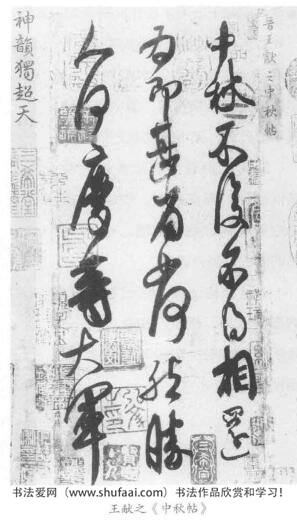 晉王獻之中秋帖
中秋不復不得相還
為即甚省如何然勝
人何慶等大軍
神韻獨超天
书法爱网（www.shufaai.com）书法作品欣赏和学习！
王献之《中秋帖》